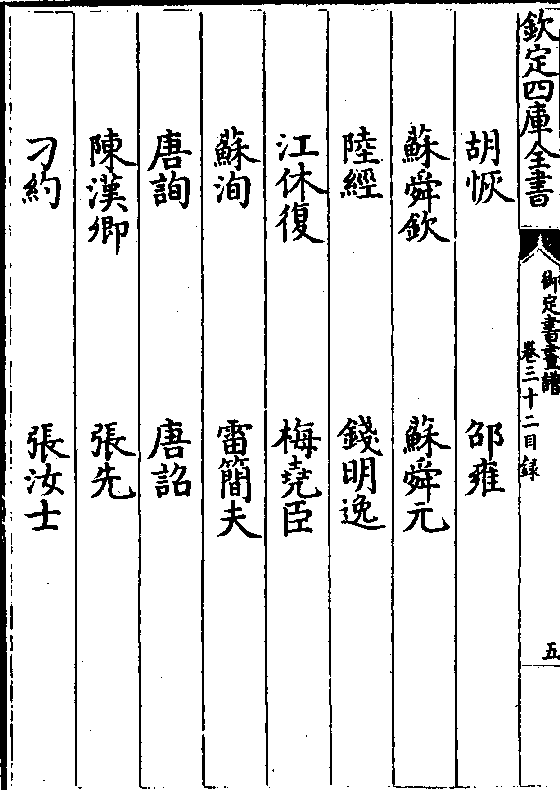 欽定四庫全書
御定書畫譜
卷三十二目録
五
胡恢
邵雍
蘇舜欽
蘇舜元
陸經
錢明逸
江休復
梅堯臣
蘇洵
雷簡夫
唐詢
唐詔
陳漢卿
張先
刁約
張汝士